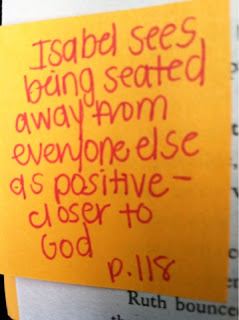 Isabel sees
being seated
away from
everyone else
as positive-
closer to
God
p.118
Ruth bounce